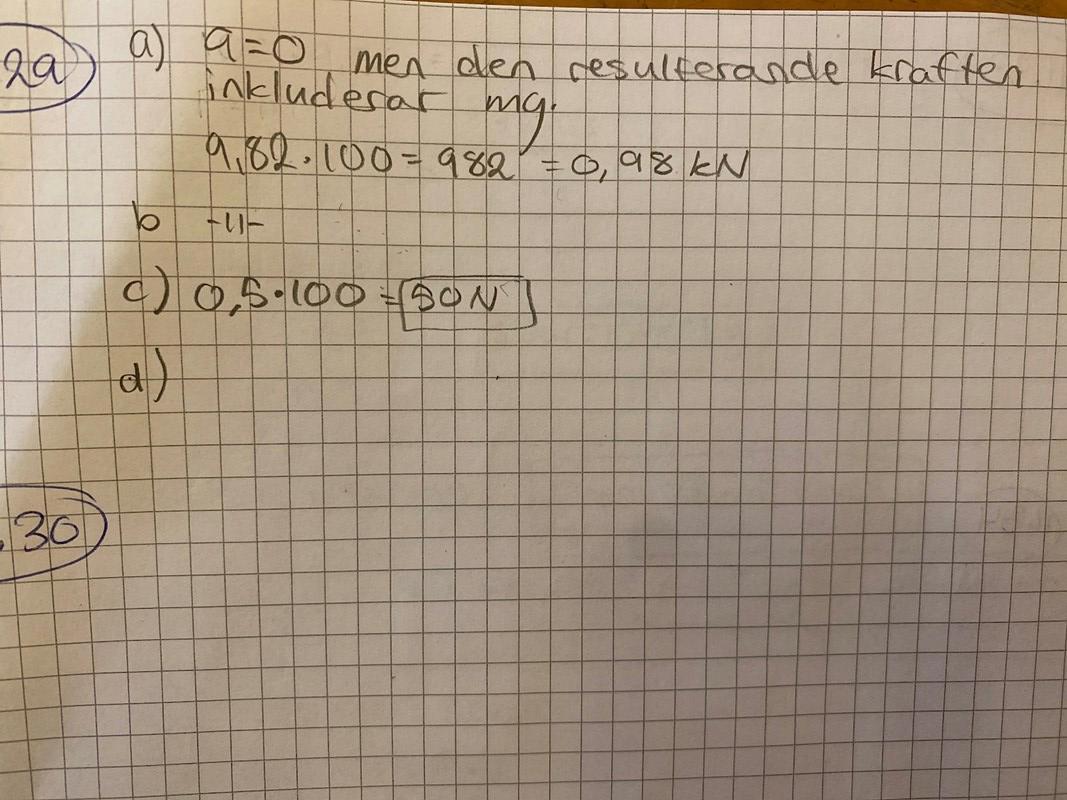 29) a) a=0 men den resulterande kraften
inkluderar mg.
9,82·100=982 =0,98 kN
b -11-
c) 0,5·100=50N
d)
.30